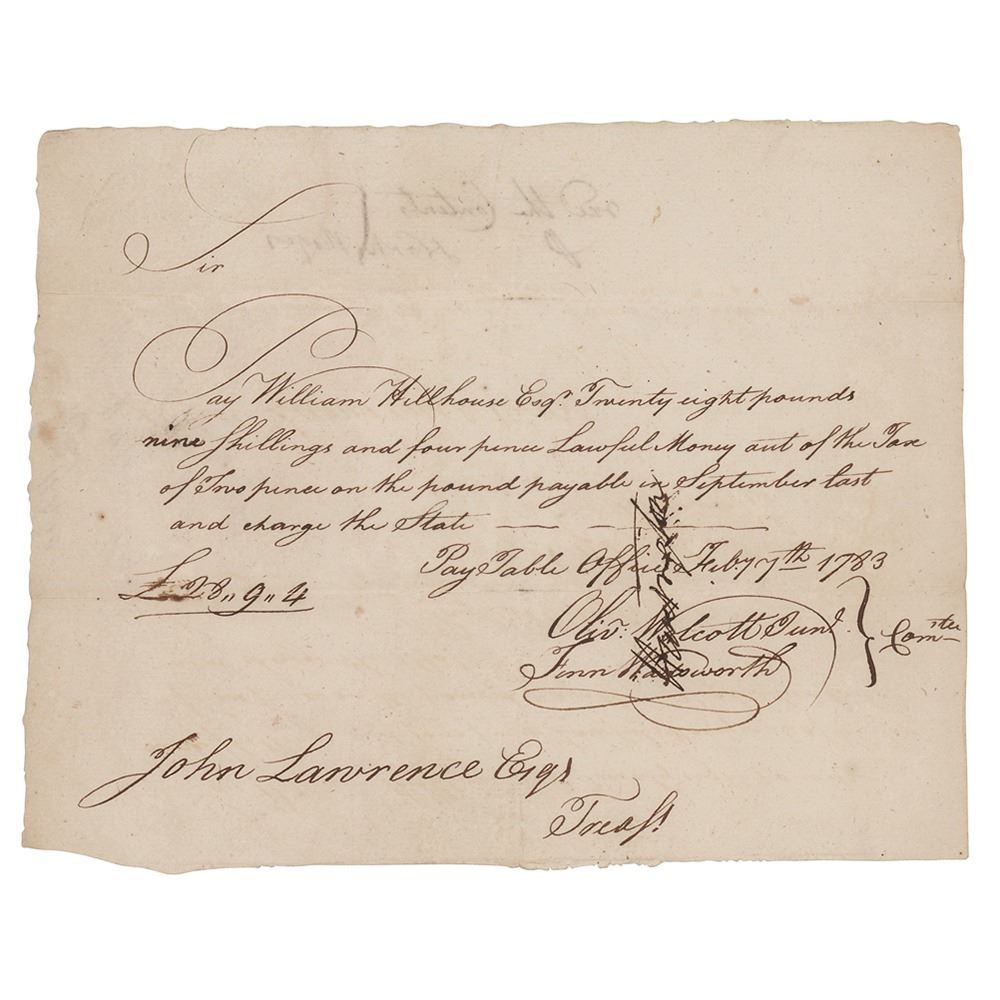 Sir
Pay William Hillhouse Esqr. Twenty eight pounds
nine Shillings and four pence Lawful Money out of the Tax
of Two pence on the pound payable in September last
and charge the State
Pay Table Office Feby 7th 1783
£28,, 9,, 4
Olivr. Wolcott Junr. } Comtee
Fenn Wadsworth
John Lawrence Esqr
Treasr